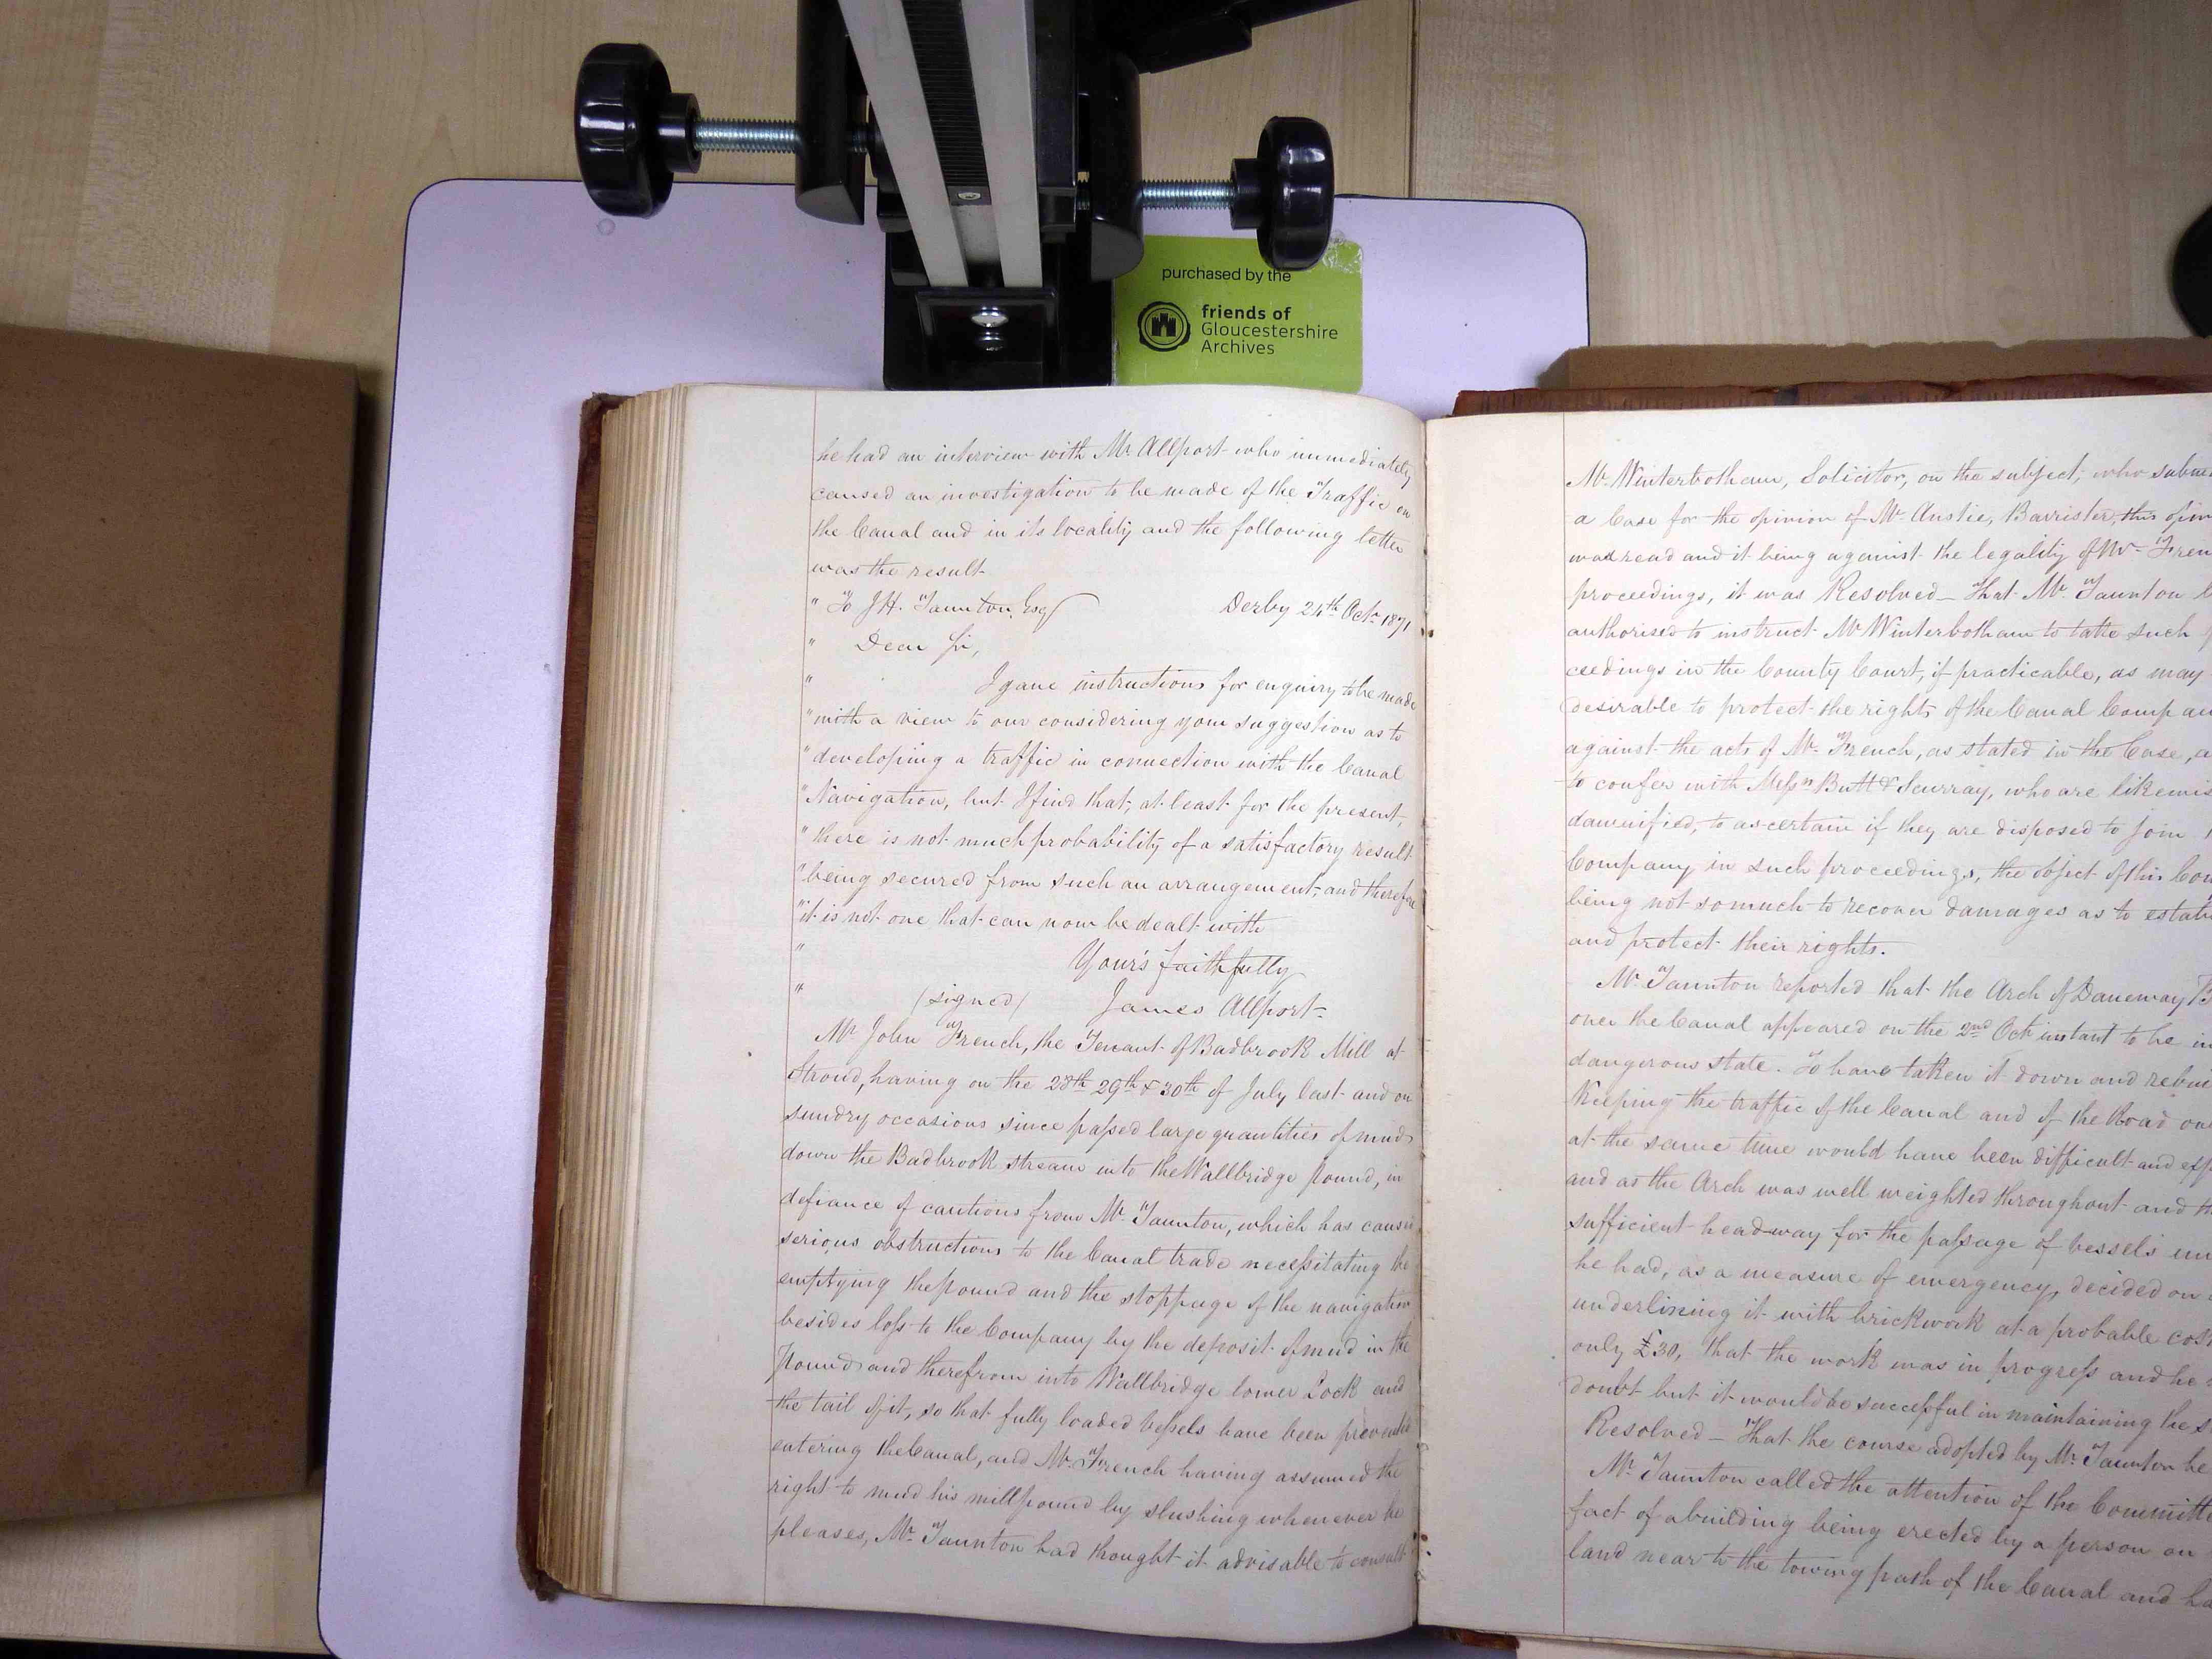 purchased by the
friends of
Gloucestershire
Archives
he had an interview with Mr Allport who immediately
caused an investigation to be made of the Traffic on
the Canal and in its locality and the following letter
was the result
" To J.H. Taunton Esq Derby 24th Octr 1871
" Dear Sir,
" I gave instructions for enquiry to be made
" with a view to our considering your suggestion as to
" developing a traffic in connection with the Canal
" Navigation, but I find that, at least for the present,
" there is not much probability of a satisfactory result
" being secured from such an arrangement, and therefore
" it is not one that can now be dealt with
" Your's faithfully
" (signed) James Allport
Mr John French, the Tenant of Badbrook Mill at
Stroud, having on the 28th 29th & 30th of July last and on
sundry occasions since passed large quantities of mud
down the Badbrook stream into the Wallbridge pound, in
defiance of cautions from Mr Taunton, which has caused
serious obstructions to the Canal trade necessitating the
emptying the pound and the stoppage of the navigation
besides loss to the Company by the deposit of mud in the
Pound and therefrom into Wallbridge lower Lock and
the tail of it, so that fully loaded vessels have been prevented
entering the Canal, and Mr French having assumed the
right to mud his millpound by slushing whenever he
pleases, Mr Taunton had thought it advisable to consult
Mr Winterbotham, Solicitor, on the subject, who subm
a Case for the opinion of Mr Anstie, Barrister, this opin
was read and it being against the legality of Mr Fren
proceedings, it was Resolved – That Mr Taunton b
authorised to instruct Mr Winterbotham to take such p
ceedings in the County Court, if practicable, as may
desirable to protect the rights of the Canal Compan
against the acts of Mr French, as stated in the Case, a
to confer with Messrs Butt & Scurray, who are likewis
damnified, to ascertain if they are disposed to join
Company in such proceedings, the object of this Com
being not so much to recover damages as to estab
and protect their rights.
Mr Taunton reported that the Arch of Daneway B
over the Canal appeared on the 2nd Oct instant to be in
dangerous state. To have taken it down and rebui
Keeping the traffic of the Canal and of the Road ov
at the same time would have been difficult and exp
and as the Arch was well weighted throughout and th
sufficient headway for the passage of vessels un
he had, as a measure of emergency, decided on
underlining it with brickwork at a probable cost
only £30, that the work was in progress and he
doubt but it would be successful in maintaining the s
Resolved – That the course adopted by Mr Taunton be
Mr Taunton called the attention of the Committe
fact of a building being erected by a person on
land near to the towing path of the Canal and ha